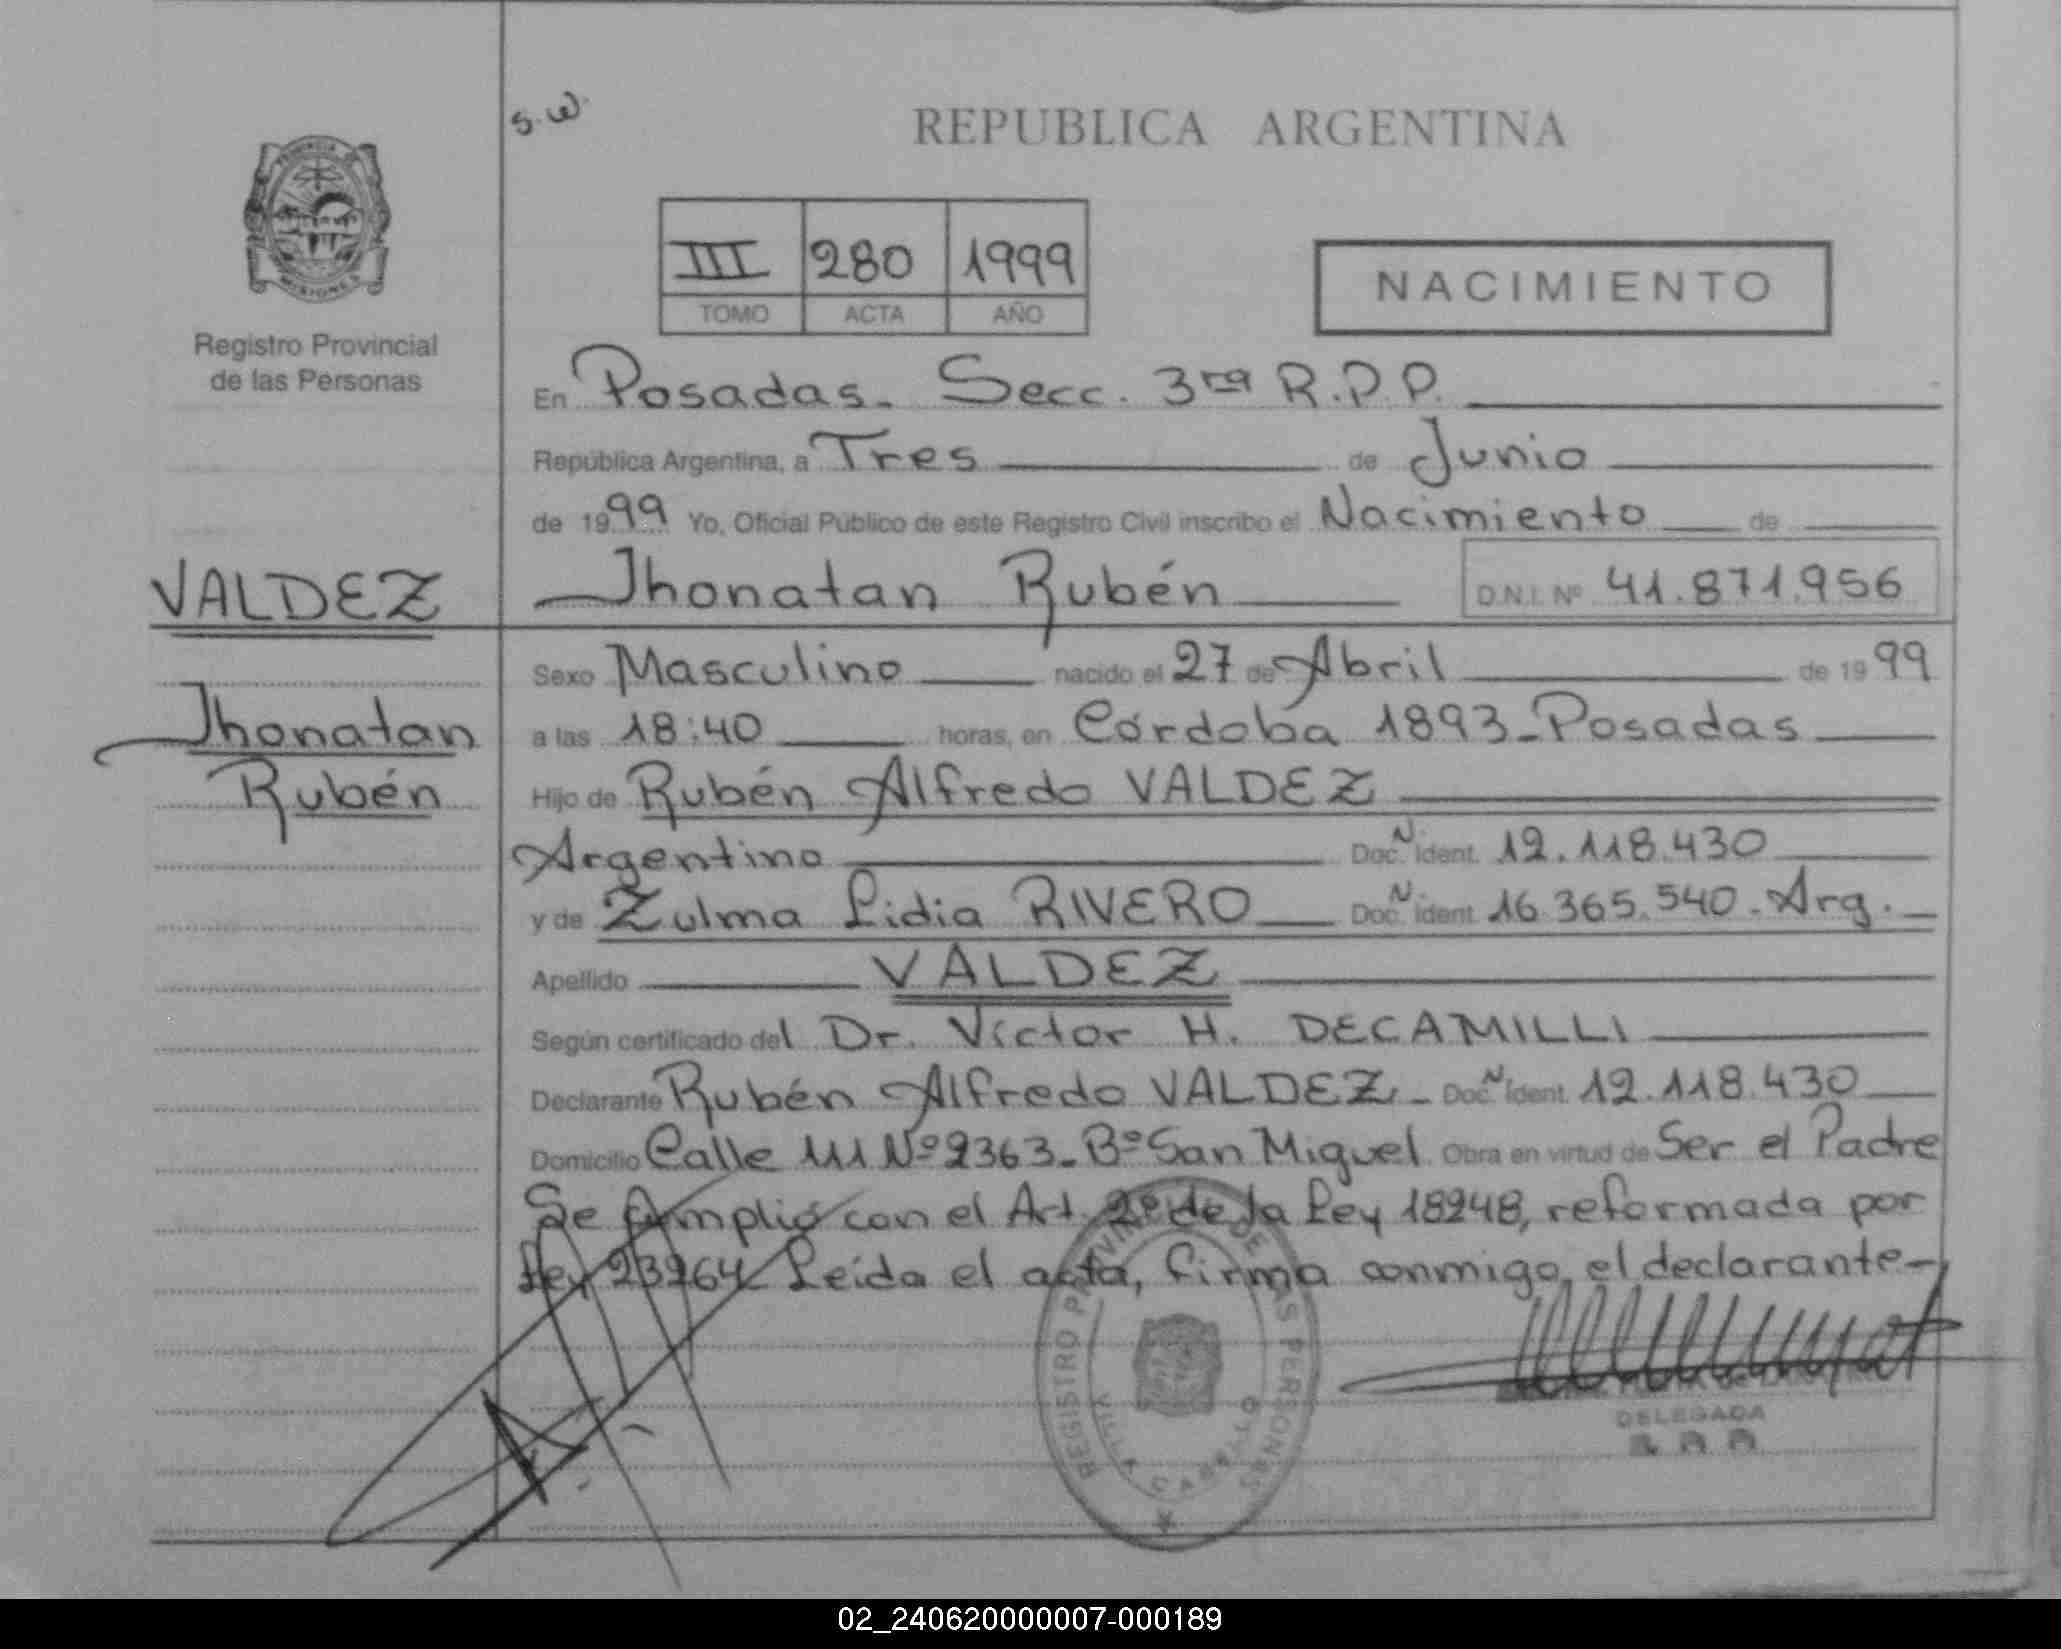 s.w.
REPUBLICA ARGENTINA
PROVINCIA DE
MISIONES
Registro Provincial
de las Personas
III 280 1999
TOMO ACTA AÑO
NACIMIENTO
En Posadas - Secc. 3ra R.P.P.
República Argentina, a Tres de Junio
de 1999 Yo, Oficial Público de este Registro Civil inscribo el Nacimiento de
VALDEZ
Jhonatan Rubén D.N.I. Nº 41.871.956
Sexo Masculino nacido el 27 de Abril de 1999
Jhonatan
a las 18:40 horas, en Córdoba 1893 - Posadas
Rubén
Hijo de Rubén Alfredo VALDEZ
Argentino Doc. N Ident. 12.118.430
y de Zulma Lidia RIVERO Doc. N Ident. 16.365.540 - Arg.
Apellido VALDEZ
Según certificado del Dr. Víctor H. DECAMILLI
Declarante Rubén Alfredo VALDEZ - Doc. N Ident. 12.118.430
Domicilio Calle 111 Nº 2363 - Bº San Miguel Obra en virtud de Ser el Padre
Se Cumplió con el Art. 2º de la Ley 18248, reformada por
Ley 23264 Leída el acta, firma conmigo, el declarante -
REGISTRO PROVINCIAL DE LAS PERSONAS
DELEGADA
02_240620000007-000189